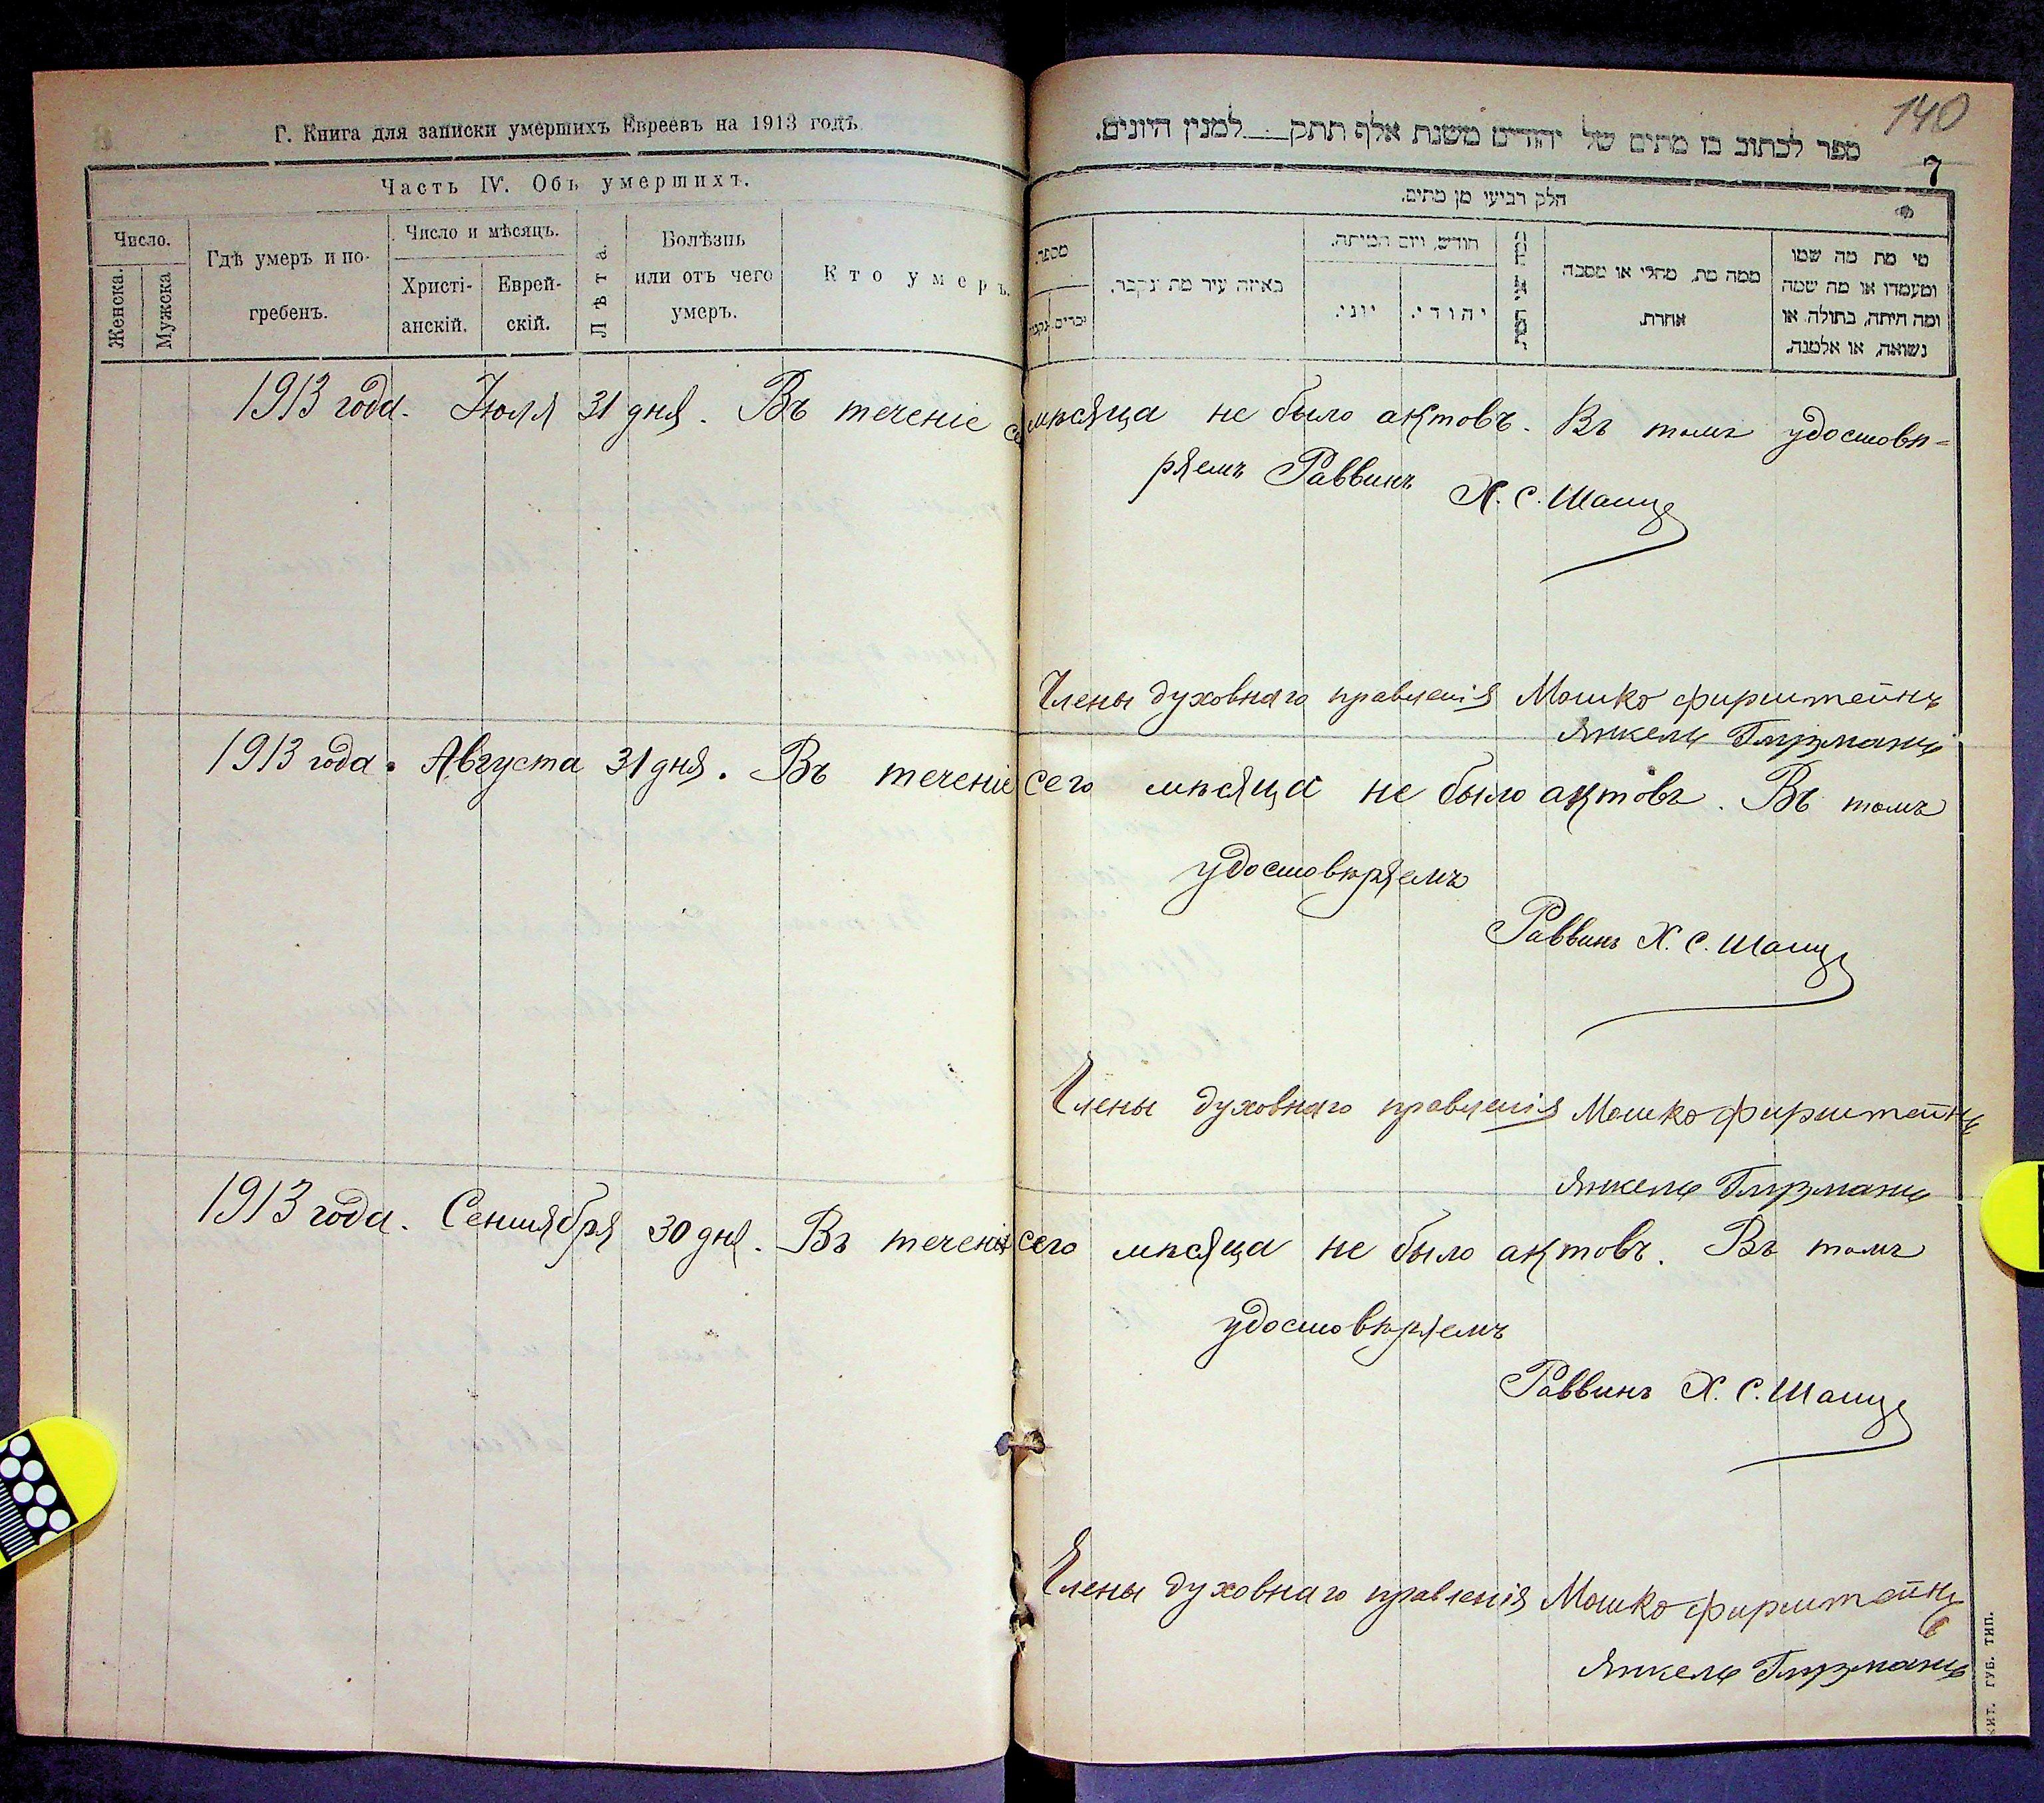 Г. Книга для записки умершихъ Евреевъ на 1913 годъ.
Часть IV. Объ умершихъ.
Число.
Женска.
Мужска
Гдѣ умеръ и по-
гребенъ.
Число и мѣсяцъ.
Христі-
анскій.
Еврей-
скій.
Лѣта.
Болѣзнь
или отъ чего
умеръ.
Кто умеръ.
140
ספר לכתוב בו מתים של יהודים משנת אלף תתק למנין היונים.
7
חלק רביעי מן מתים.
מספר.
זכרים
באיזה עיר מת ונקבר.
חודש, ויום המיתה.
יוני.
יהודי.
ממה מת, מחלי או מסבה
אחרת.
מי מת מה שמו
ומעמדו או מה שמה
ומה היתה, בתולה או
נשואה, או אלמנה.
1913 года. Июля 31 дня. Въ теченіе се мѣсяца не было актовъ. Въ томъ удостовѣ-
ряемъ Раввинъ Х. С.
Члены духовнаго правленія Мошко Фирштейнъ
Янкель
1913 года. Августа 31 дня. Въ теченіе сего мѣсяца не было актовъ. Въ томъ
удостовѣряемъ
Раввинъ Х. С.
Члены духовнаго правленія Мошко Фирштейнъ
Янкель
1913 года. Сентября 30 дня. Въ теченіе сего мѣсяца не было актовъ. Въ томъ
удостовѣряемъ
Раввинъ Х. С.
Члены духовнаго правленія Мошко Фирштейнъ
Янкель
ЖИТ. ГУБ. ТИП.